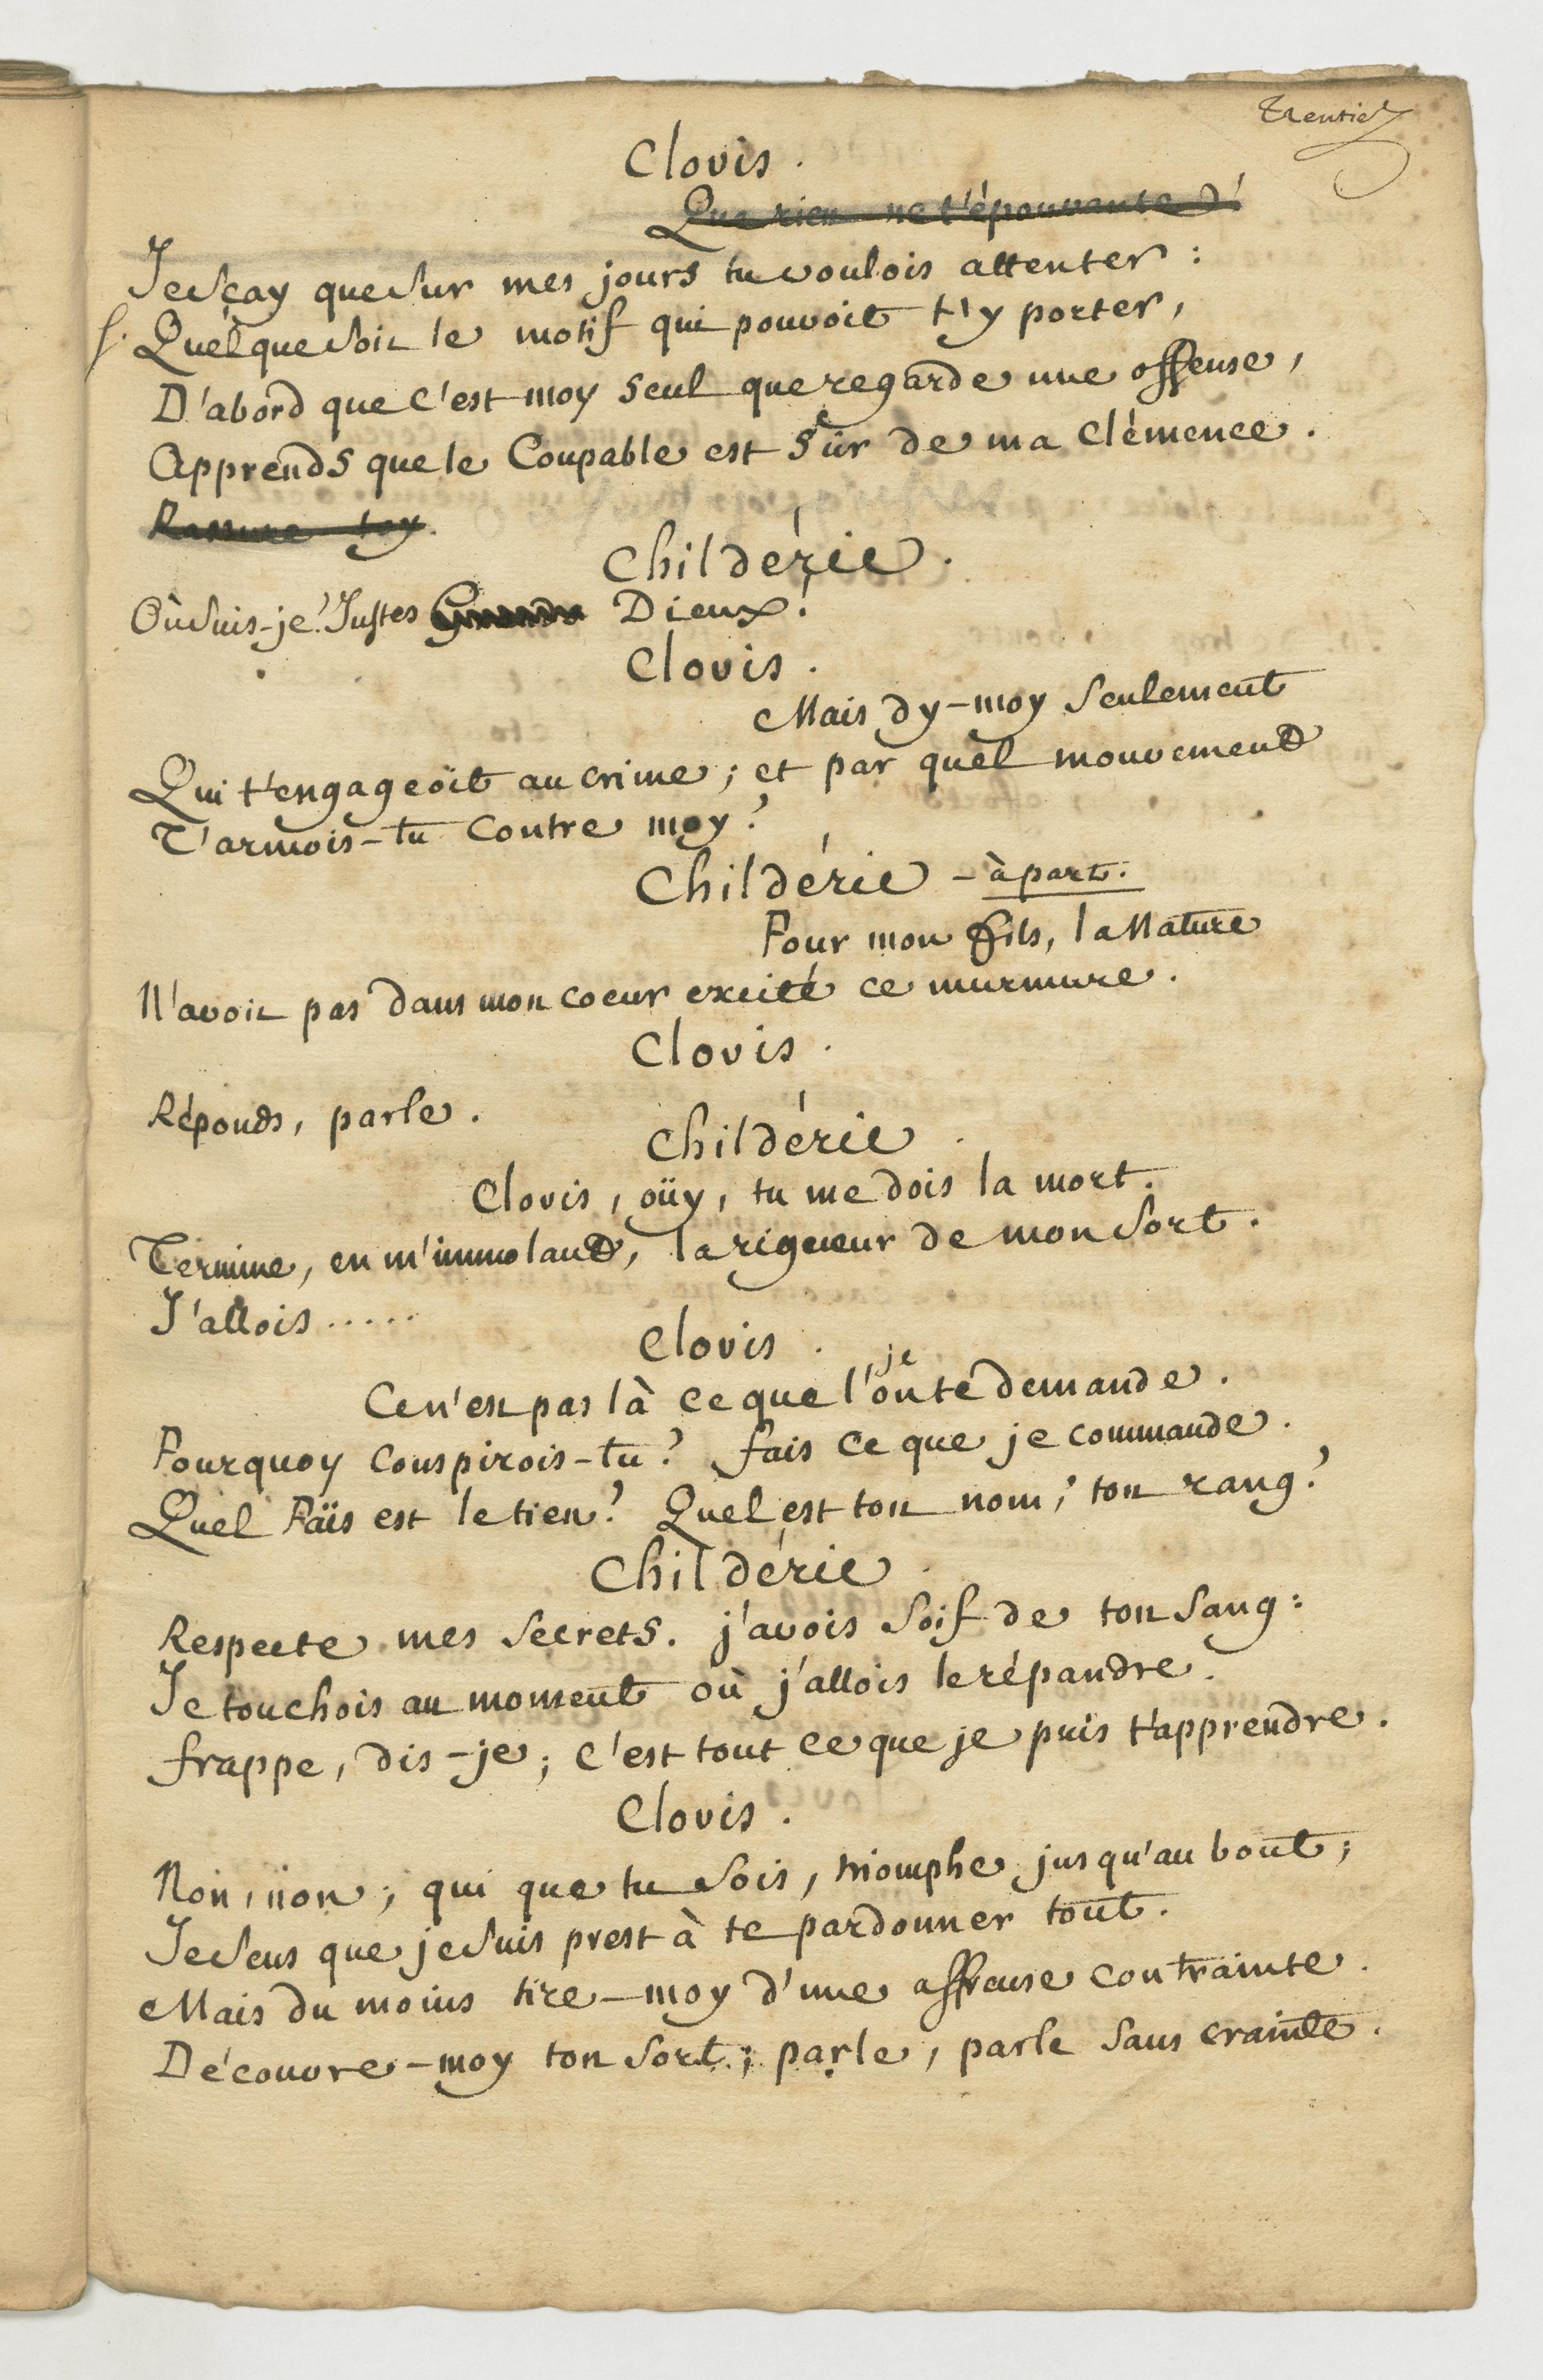 Clovis.
Que rien ne t'épouvante
Je sçay que sur mes jours tu voulois attenter :
Quel que soit le motif qui pouvoit t'y porter,
D'abord que c'est moy seul que regarde une offense,
Apprends que le Coupable est seûr de ma clémence.
Rassure toy.
Childéric.
Où suis-je! Justes Dieux!
Clovis.
Mais dy-moy seulement
Qui t'engageoit au crime; et par quel mouvement
T'armois-tu contre moy?
Childéric - à part.
Pour mon fils, la Nature
N'avoit pas dans mon coeur excité ce murmure.
Clovis.
Réponds, parle.
Childéric.
Clovis, oüy, tu me dois la mort.
Termine, en m'immolant, la rigueur de mon sort.
J'allois.....
Clovis.
Ce n'est pas là ce que je l'on te demande.
Pourquoy conspirois-tu? fais ce que je commande.
Quel Païs est le tien? Quel est ton nom; ton rang?
Childéric.
Respecte mes secrets. j'avois soif de ton sang:
Je touchois au moment où j'allois le répandre.
frappe, dis-je; c'est tout ce que je puis t'apprendre.
Clovis.
Non, non; qui que tu sois, triomphe jusqu'au bout;
Je sens que je suis prest à te pardonner tout.
Mais du moins tire-moy d'une affreuse contrainte.
Découvre-moy ton sort; parle, parle sans crainte.